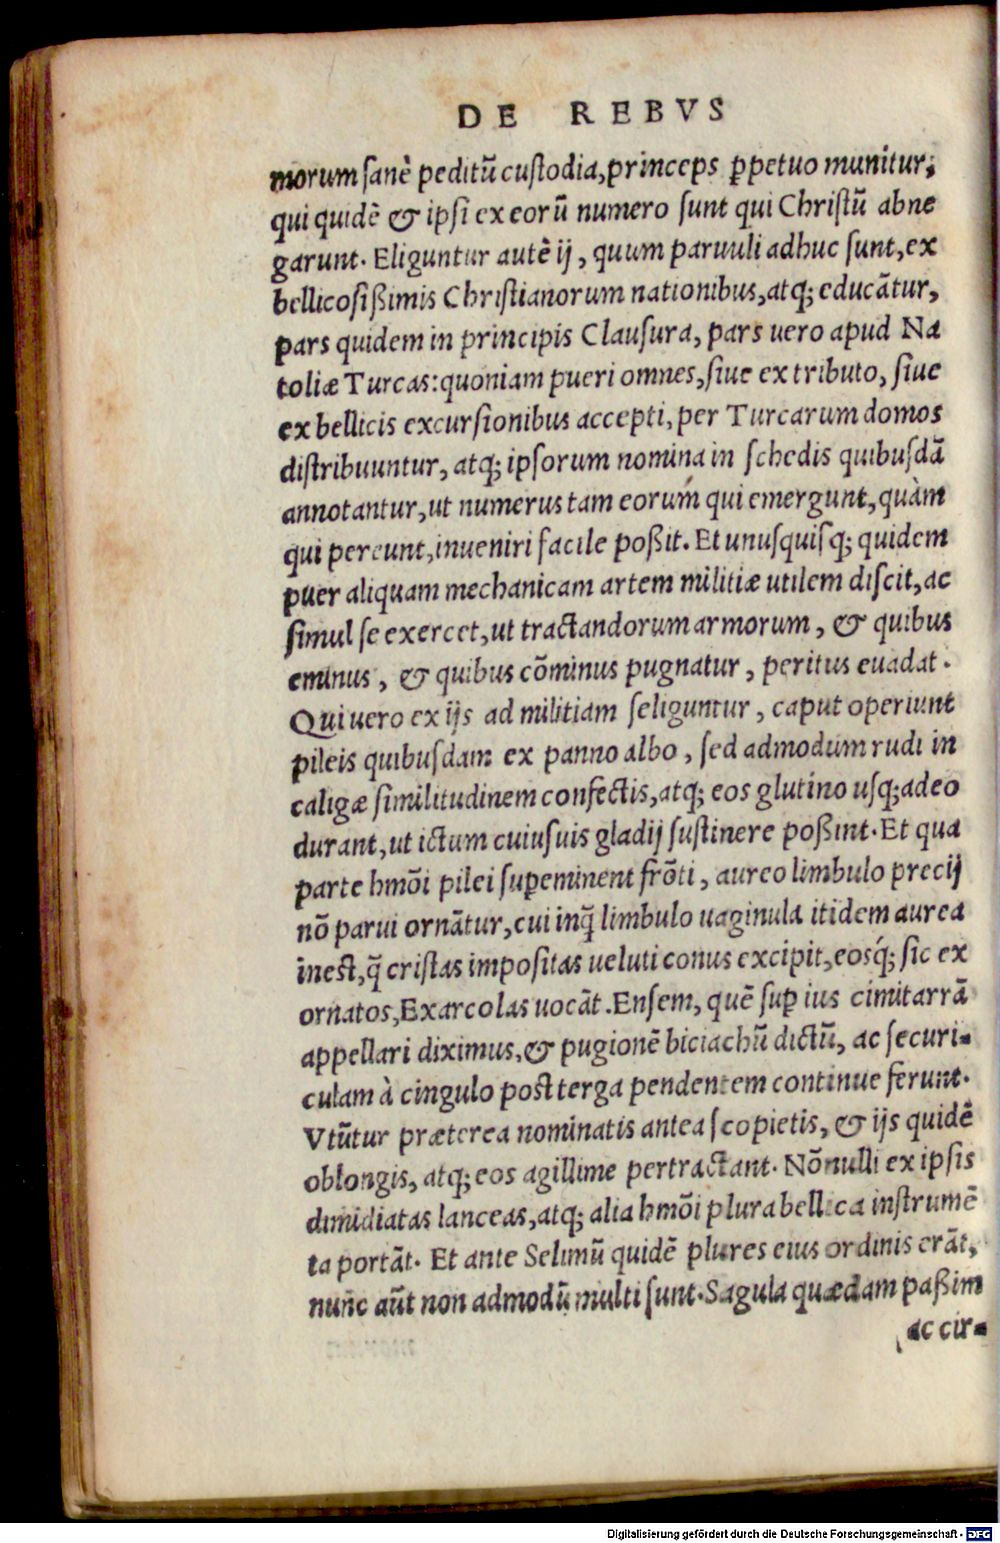 DE REBVS
morum sanè peditū custodia, princeps ꝑpetuo munitur,
qui quidē & ipsi ex eorū numero sunt qui Christū abne
garunt. Eliguntur autē ij, quum paruuli adhuc sunt, ex
bellicosißimis Christianorum nationibus, atq; educātur,
pars quidem in principis Clausura, pars uero apud Na
toliæ Turcas: quoniam pueri omnes, siue ex tributo, siue
ex bellicis excursionibus accepti, per Turcarum domos
distribuuntur, atq; ipsorum nomina in schedis quibusdā
annotantur, ut numerus tam eorum qui emergunt, quàm
qui pereunt, inueniri facile poßit. Et unusquisq; quidem
puer aliquam mechanicam artem militiæ utilem discit, ac
simul se exercet, ut tractandorum armorum, & quibus
eminus, & quibus cōminus pugnatur, peritus euadat.
Qui uero ex ijs ad militiam seliguntur, caput operiunt
pileis quibusdam ex panno albo, sed admodum rudi in
caligæ similitudinem confectis, atq; eos glutino usq; adeo
durant, ut ictum cuiusuis gladij sustinere poßint. Et qua
parte hmōi pilei suꝑeminent frōti, aureo limbulo precij
nō parui ornātur, cui inq̄ limbulo uaginula itidem aurea
inest, q̄ cristas impositas ueluti conus excipit, eosq́; sic ex
ornatos, Exarcolas uocāt. Ensem, quē suꝑius cimitarrā
appellari diximus, & pugionē biciachū dictū, ac securi-
culam à cingulo post terga pendentem continue ferunt.
Vtūtur præterea nominatis antea scopietis, & ijs quidē
oblongis, atq; eos agillime pertractant. Nōnulli ex ipsis
dimidiatas lanceas, atq; alia hmōi plura bellica instrumē
ta portāt. Et ante Selimū quidē plures eius ordinis erāt,
nunc aūt non admodū multi sunt. Sagula quædam paßim
ac cir-
Digitalisierung gefördert durch die Deutsche Forschungsgemeinschaft - DFG